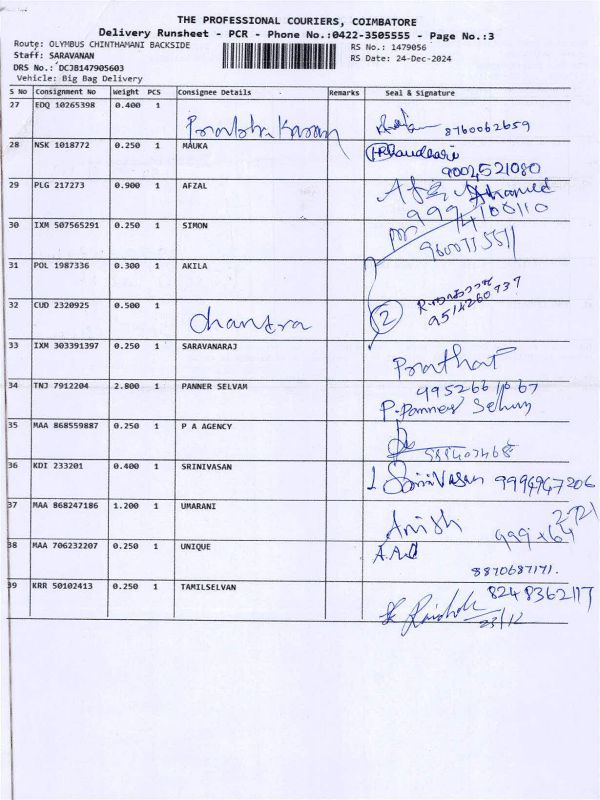 THE PROFESSIONAL COURIERS, COIMBATORE
Delivery Runsheet - PCR - Phone No.:0422-3505555 - Page No.:3
Route: OLYMBUS CHINTHAMANI BACKSIDE RS No.: 1479056
Staff: SARAVANAN RS Date: 24-Dec-2024
DRS No.: DCJB147905603
Vehicle: Big Bag Delivery
S No Consignment No Weight PCS Consignee Details Remarks Seal & Signature
27 EDQ 10265398 0.400 1 Prabhu Karan 8760062659
28 NSK 1018772 0.250 1 MAUKA 9002521080
29 PLG 217273 0.900 1 AFZAL
30 IXM 507565291 0.250 1 SIMON
31 POL 1987336 0.300 1 AKILA
32 CUD 2320925 0.500 1 Chandra 2 9514260737
33 IXM 303391397 0.250 1 SARAVANARAJ Prathap
34 TNJ 7912204 2.800 1 PANNER SELVAM P. Panner Selvam
35 MAA 868559887 0.250 1 P A AGENCY
36 KDI 233201 0.400 1 SRINIVASAN Srinivasan 9994947206
37 MAA 868247186 1.200 1 UMARANI Anish
38 MAA 706232207 0.250 1 UNIQUE 8870687171.
39 KRR 50102413 0.250 1 TAMILSELVAN 8248362117
23/12